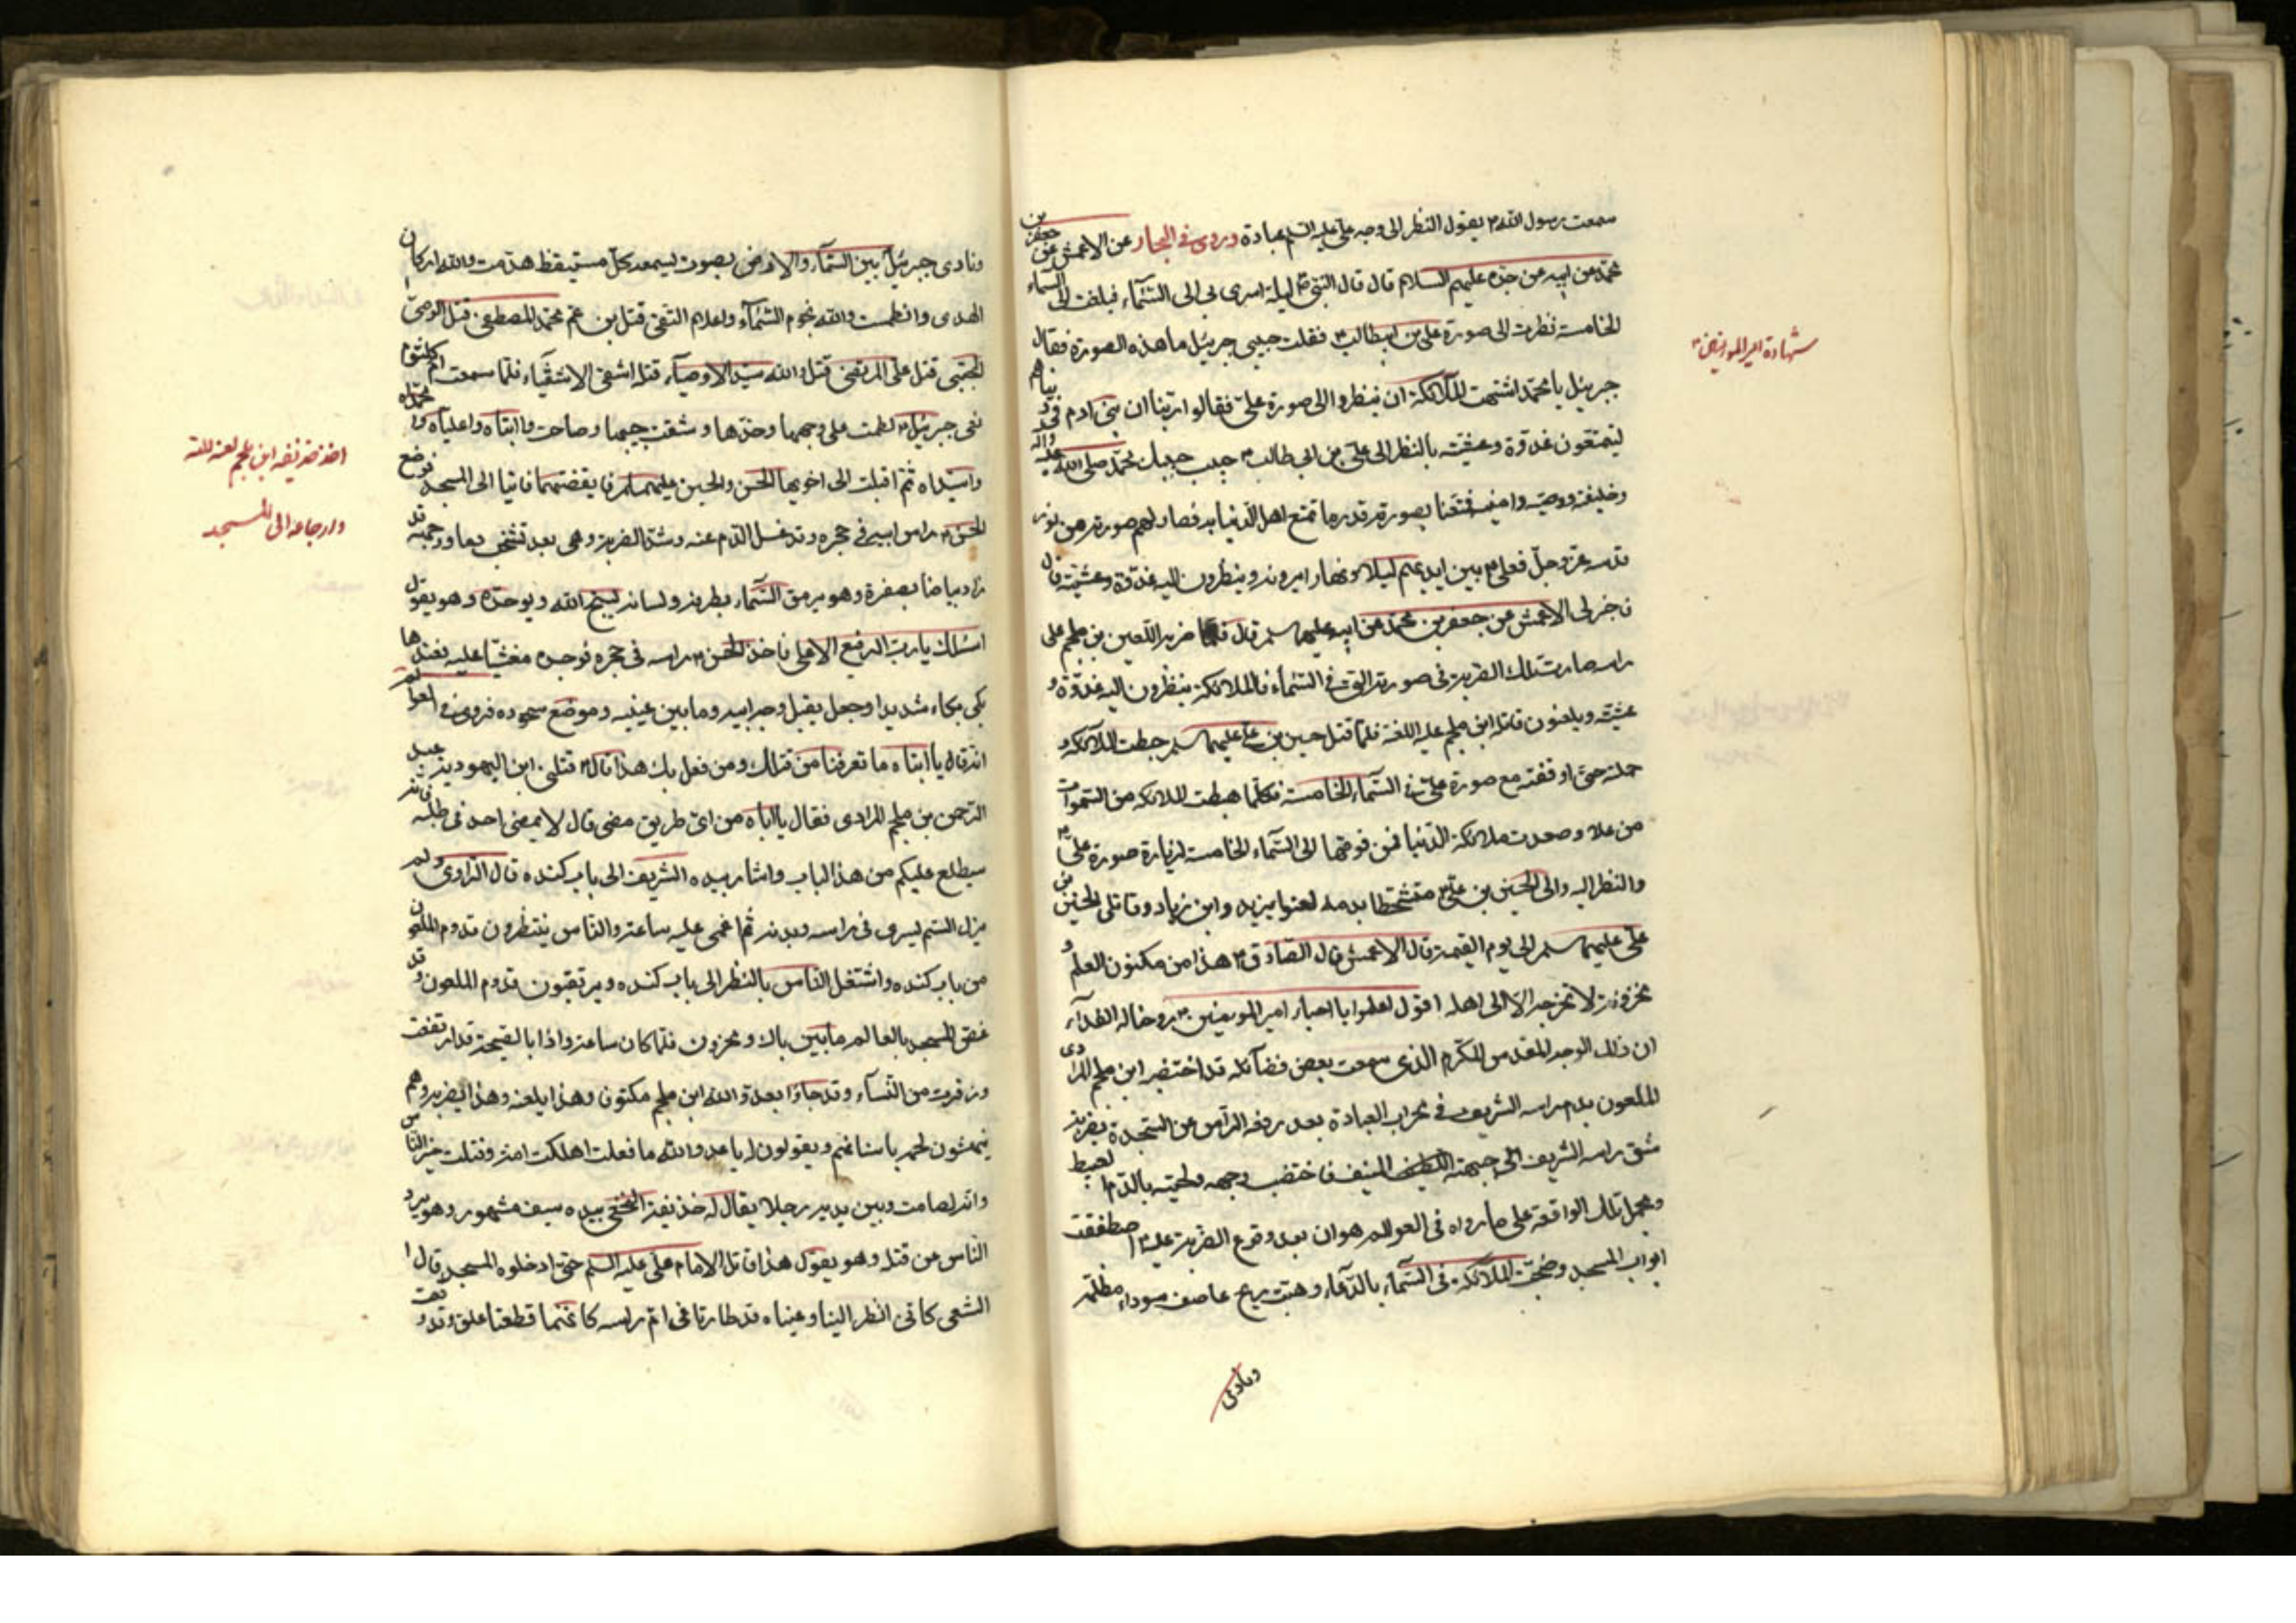 سمعت رسول الله ص يقول النظر الى وجه علي عليه السلم عبادة وروى في البحار عن الاعمش عن جعفر بن
محمد عن ابيه عن جده عليهم السلام قال قال النبي ص ليلة اسرى بي الى السمآء فبلغت الى السماء
الخامسة نظرت الى صورة علي بن ابيطالب ع فقلت حبيبي جبرئيل ما هذه الصورة فقال
جبرئيل يا محمد اشتهت الملآئكة ان ينظروا الى صورة علي فقالوا ربنا ان بني ادم في دنياهم
ليتمتعون غدوة وعشية بالنظر الى علي بن ابي طالب ع حبيب حبيبك محمد صلى الله عليه واله
وخليفته ووصيه وامينه فمتعنا بصورته قدر ما تمتع اهل الدنيا به فصار لهم صورته من نور
قدسه عز وجل فعلي ع بين ايديهم ليلا ونهارا يزورونه وينظرون اليه غدوة وعشية قال
فاخبرني الاعمش عن جعفر بن محمد عن ابيه عليهم سلم قال فلما ضربه اللعين بن ملجم على
راسه صارت تلك الضربة في صورته التي في السمآء فالملائكة ينظرون اليه غدوة و
عشية ويلعنون قاتله ابن ملجم عليه اللعنة فلما قتل حسين بن علي عليهما سلم هبطت الملائكة و
حملته حتى اوقفته مع صورة علي في السمآء الخامسة فكلما هبطت الملائكة من السموات
من علا وصعدت ملائكة الدنيا فمن فوقها الى السمآء الخامسة لزيارة صورة علي ع
والنظر اليه والى الحسين بن علي ع متشحطا بدمه لعنوا يزيد وابن زياد وقاتلي الحسين بن
علي عليهما سلم الى يوم القيمة قال الاعمش قال الصادق ع هذا من مكنون العلم و
مخزونه لا تخرجه الا الى اهله اقول اعلموا يا احبار امير المومنين ع روحنا له الفدآء
ان ذلك الوجه المقدس المكرم الذي سمعت بعض فضآئله قد اختضبه ابن ملجم المرادي
الملعون بدم راسه الشريف في محراب العبادة بعد رفعه الراس عن السجدة بضربة
شق راسه الشريف الى جبهته المنيف فاختضب وجهه ولحيته بالدم العبيط
ومجمل تلك الواقعة على ما رواه في العوالم هو ان بعد وقوع الضربة عليه ع اصطفقت
ابواب المسجد وضجت الملائكة في السمآء بالدعآء وهبت ريح عاصف سوداء مظلمة
ونادى
شهادة امير المومنين ع
ونادى جبرئيل بين السمآء والارض بصوت يسمعه كل مستيقظ هدمت والله اركان
الهدى وانطمست والله نجوم السمآء واعلام التقى قتل بن عم محمد المصطفى قتل الوصي
المجتبى قتل علي المرتضى قتل والله سيد الاوصيآء قتله اشقى الاشقيآء فلما سمعت ام كلثوم
نعي جبرئيل ع لطمت على وجهها وخدها وشقت جيبها وصاحت وا ابتاه واعلياه وا محمداه
واسيداه ثم اقبلت الى اخويها الحسن والحسين عليهما سلم فايقضتهما فاتيا الى المسجد فوضع
الحسن ع راس ابيه في حجره وقد غسل الدم عنه وشد الضربة وهي بعد تشخب دما ووجهه قد
زاد بياضا بصفرة وهو يرمق السمآء بطرفه ولسانه يسبح الله ويوحده وهو يقول
اسئلك يارب الرفيع الاعلى فاخذ الحسن ع راسه في حجره فوجده مغشيا عليه فعندها
بكى بكاء شديدا وجعل يقبل وجه ابيه وما بين عينيه وموضع سجوده فروى في العوالم
انه قال يا ابتاه ما تعرفنا من قتلك ومن فعل بك هذا قال ع قتلني ابن اليهودية عبد
الرحمن بن ملجم المرادي فقال يا اباه من اي طريق مضى قال لا يمضي احد في طلبه فانه
سيطلع عليكم من هذا الباب واشار بيده الشريف الى باب كنده قال الراوي ولم
يزل السم يسري في راسه وبدنه ثم اغمي عليه ساعة والناس ينتظرون قدوم الملعون
من باب كنده واشتغل الناس بالنظر الى باب كنده ويرتقبون قدوم الملعون وقد
غص المسجد بالعالم ما بين باك ومحزون فلما كان ساعة واذا بالصيحة قد ارتفعت
وزفرت من النسآء وقد جاؤا بعدو الله ابن ملجم مكتوف وهذا يلعنه وهذا يضربه وهم
ينهشون لحمه باسنانهم ويقولون له يا عدو الله ما فعلت اهلكت امة وقتلت خير الناس
وانه لصامت وبين يديه رجلا يقال له حذيفة النخعي بيده سيف مشهور وهو يرد
الناس عن قتله وهو يقول هذا قاتل الامام علي عليه السلم حتى ادخلوه المسجد قال ا
لشعبي كاني انظر الينا وعيناه قد طارتا في ام راسه كانهما قطعتا علق وقد وقعت
اخذ حذيفه ابن ملجم لعنه الله
وارجاعه الى المسجد